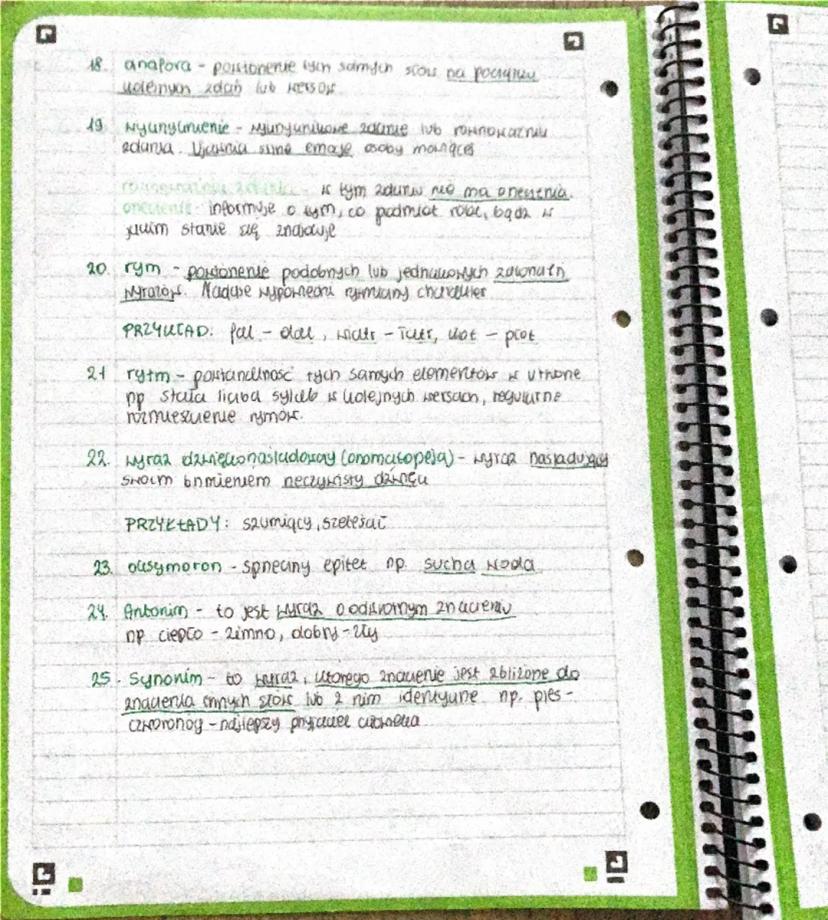 18. anafora - powtórzenie tych samych słów na początku
kolejnych zdań lub wersów.
19. wykrzyknienie - wykrzyknikowe zdanie lub równoważnik
zdania. Ujawnia silne emocje osoby mówiącej
równoważnik zdania - w tym zdaniu nie ma orzeczenia.
orzeczenie - informuje o tym, co podmiot robi, bądź w
jakim stanie się znajduje
20. rym - powtórzenie podobnych lub jednakowych zakończeń
wyrazów. Nadaje wypowiedzi rytmiczny charakter
PRZYKŁAD: fal - dal, wiatr - , kot - płot
21 rytm - powtarzalność tych samych elementów w utworze
np stała liczba sylab w kolejnych wersach, regularne
rozmieszczenie rymów.
22. wyraz dźwiękonaśladowczy (onomatopeja) - wyraz naśladujący
swoim brzmieniem rzeczywisty dźwięk
PRZYKŁADY: szumiący, szeleścić
23. oksymoron - sprzeczny epitet np. sucha woda
24. Antonim - to jest wyraz o odwrotnym znaczeniu
np ciepło - zimno, dobry - zły
25. Synonim - to wyraz, którego znaczenie jest zbliżone do
znaczenia innych słów lub z nim identyczne np. pies -
czworonóg - najlepszy przyjaciel człowieka